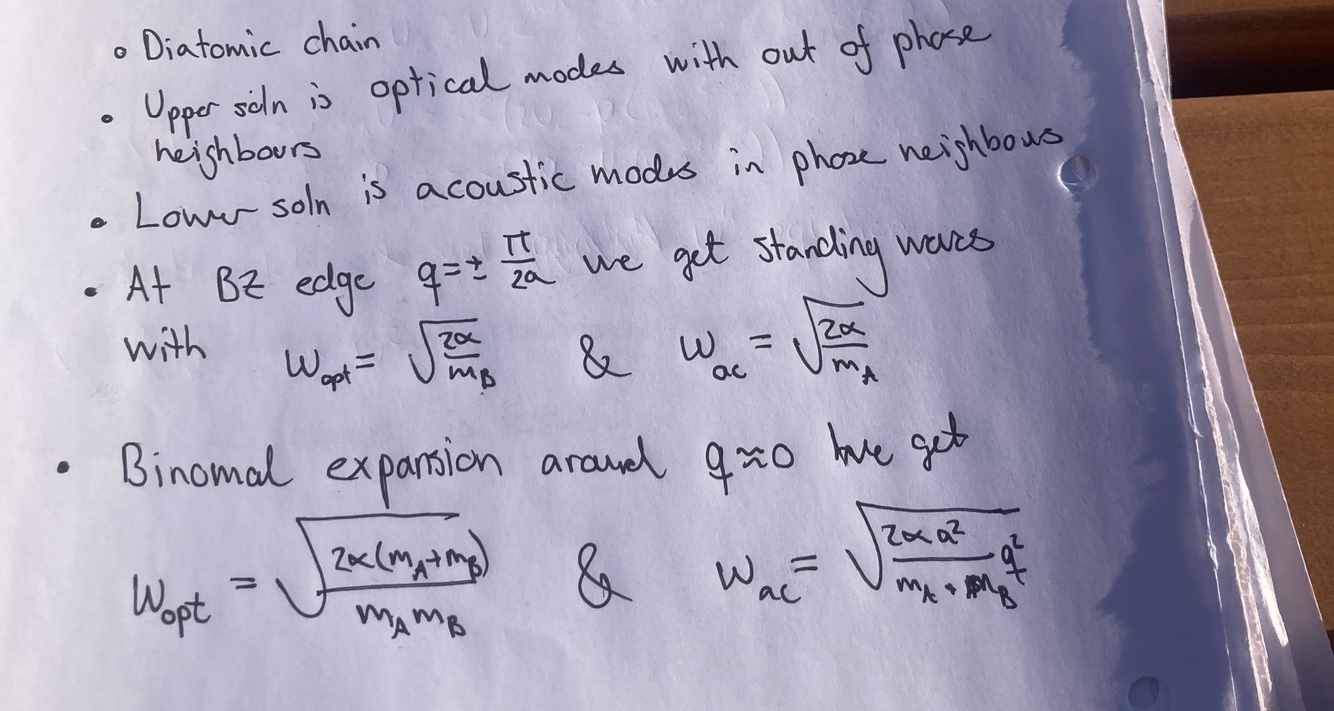 • Diatomic chain
• Upper soln is optical modes with out of phase
neighbours
• Lower soln is acoustic modes in phase neighbous
• At BZ edge q=± π/2a we get standing waves
with ω_opt = √(2α/m_B) & ω_ac = √(2α/m_A)
• Binomal expansion around q≈0 we get
ω_opt = √(2α(m_A+m_B)/m_A m_B) & ω_ac = √(2αa²/(m_A + m_B) q²)